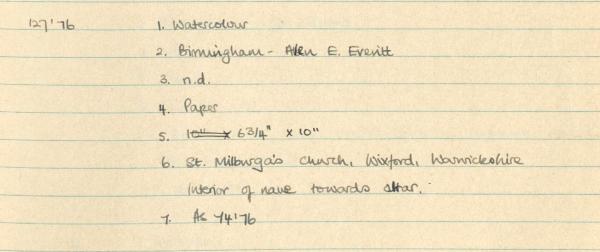 127'76 1. Watercolour
2. Birmingham - Allen E. Everitt
3. n.d.
4. Paper
5. 10" x 6 3/4" x 10"
6. St. Milburga's church, Wixford, Warwickshire
Interior of nave towards altar.
7. As 74'76